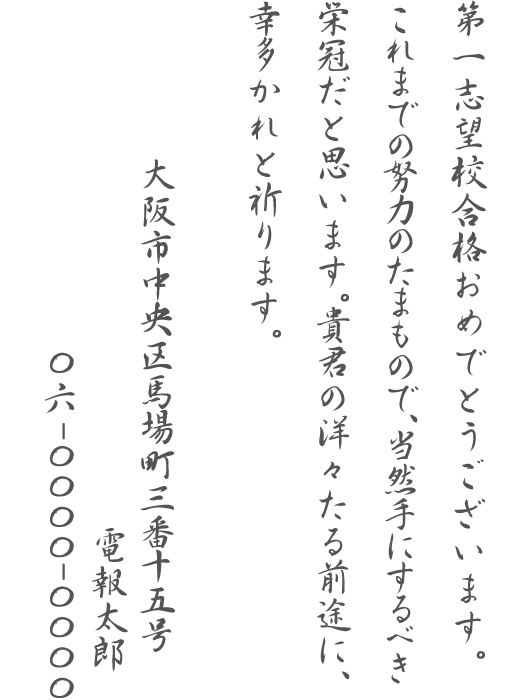 第一志望校合格おめでとうございます。
これまでの努力のたまもので、当然手にするべき
栄冠だと思います。貴君の洋々たる前途に、
幸多かれと祈ります。
大阪市中央区馬場町三番十五号
電報太郎
〇六ー〇〇〇〇ー〇〇〇〇